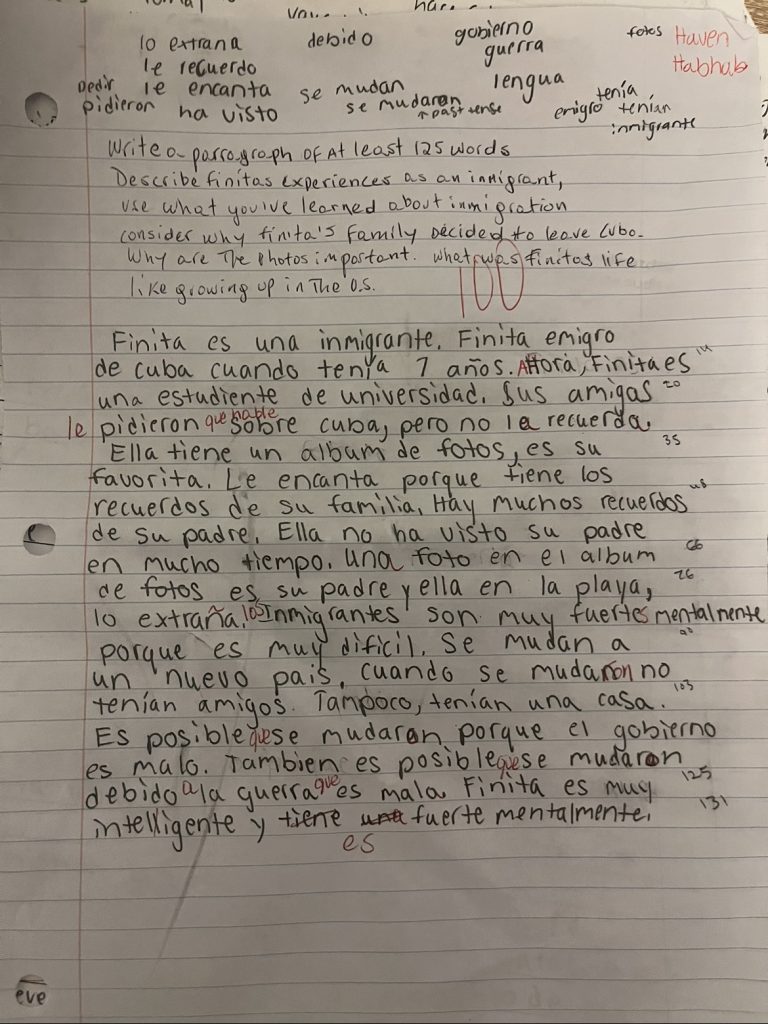 lo extrana debido gobierno fotos Haven
le recuerdo guerra Habhab
Dedir le encanta se mudan lengua tenía
pidieron ha visto se mudaron emigro tenían
↑past tense inmigrante
Write a parragraph of At least 125 words
Describe finitas experiences as an inmigrant,
use what youive learned about inmigration
consider why finita's family decided to leave Cuba.
Why are The Photos important. what was finitas life
like growing up in The U.S.
100
Finita es una inmigrante. Finita emigro
de cuba cuando tenía 7 años. Ahora, Finita es 14
una estudiente de universidad. Sus amigas 20
le pidieron que hable sobre cuba, pero no la recuerda.
Ella tiene un album de fotos, es su 35
favorita. Le encanta porque tiene los
recuerdos de su familia. Hay muchos recuerdos 48
de su padre. Ella no ha visto su padre
en mucho tiempo. Una foto en el album 66
de fotos es su padre y ella en la playa, 76
lo extraña. los Inmigrantes son muy fuertes mentalmente
porque es muy dificil. Se mudan a 93
un nuevo pais, cuando se mudaron no
tenían amigos. Tampoco, tenían una casa. 103
Es posible que se mudaron porque el gobierno
es malo. Tambien es posible que se mudaron
debido a la guerra que es mala. Finita es muy 125
intelligente y tiene una fuerte mentalmente. 131
es
eve